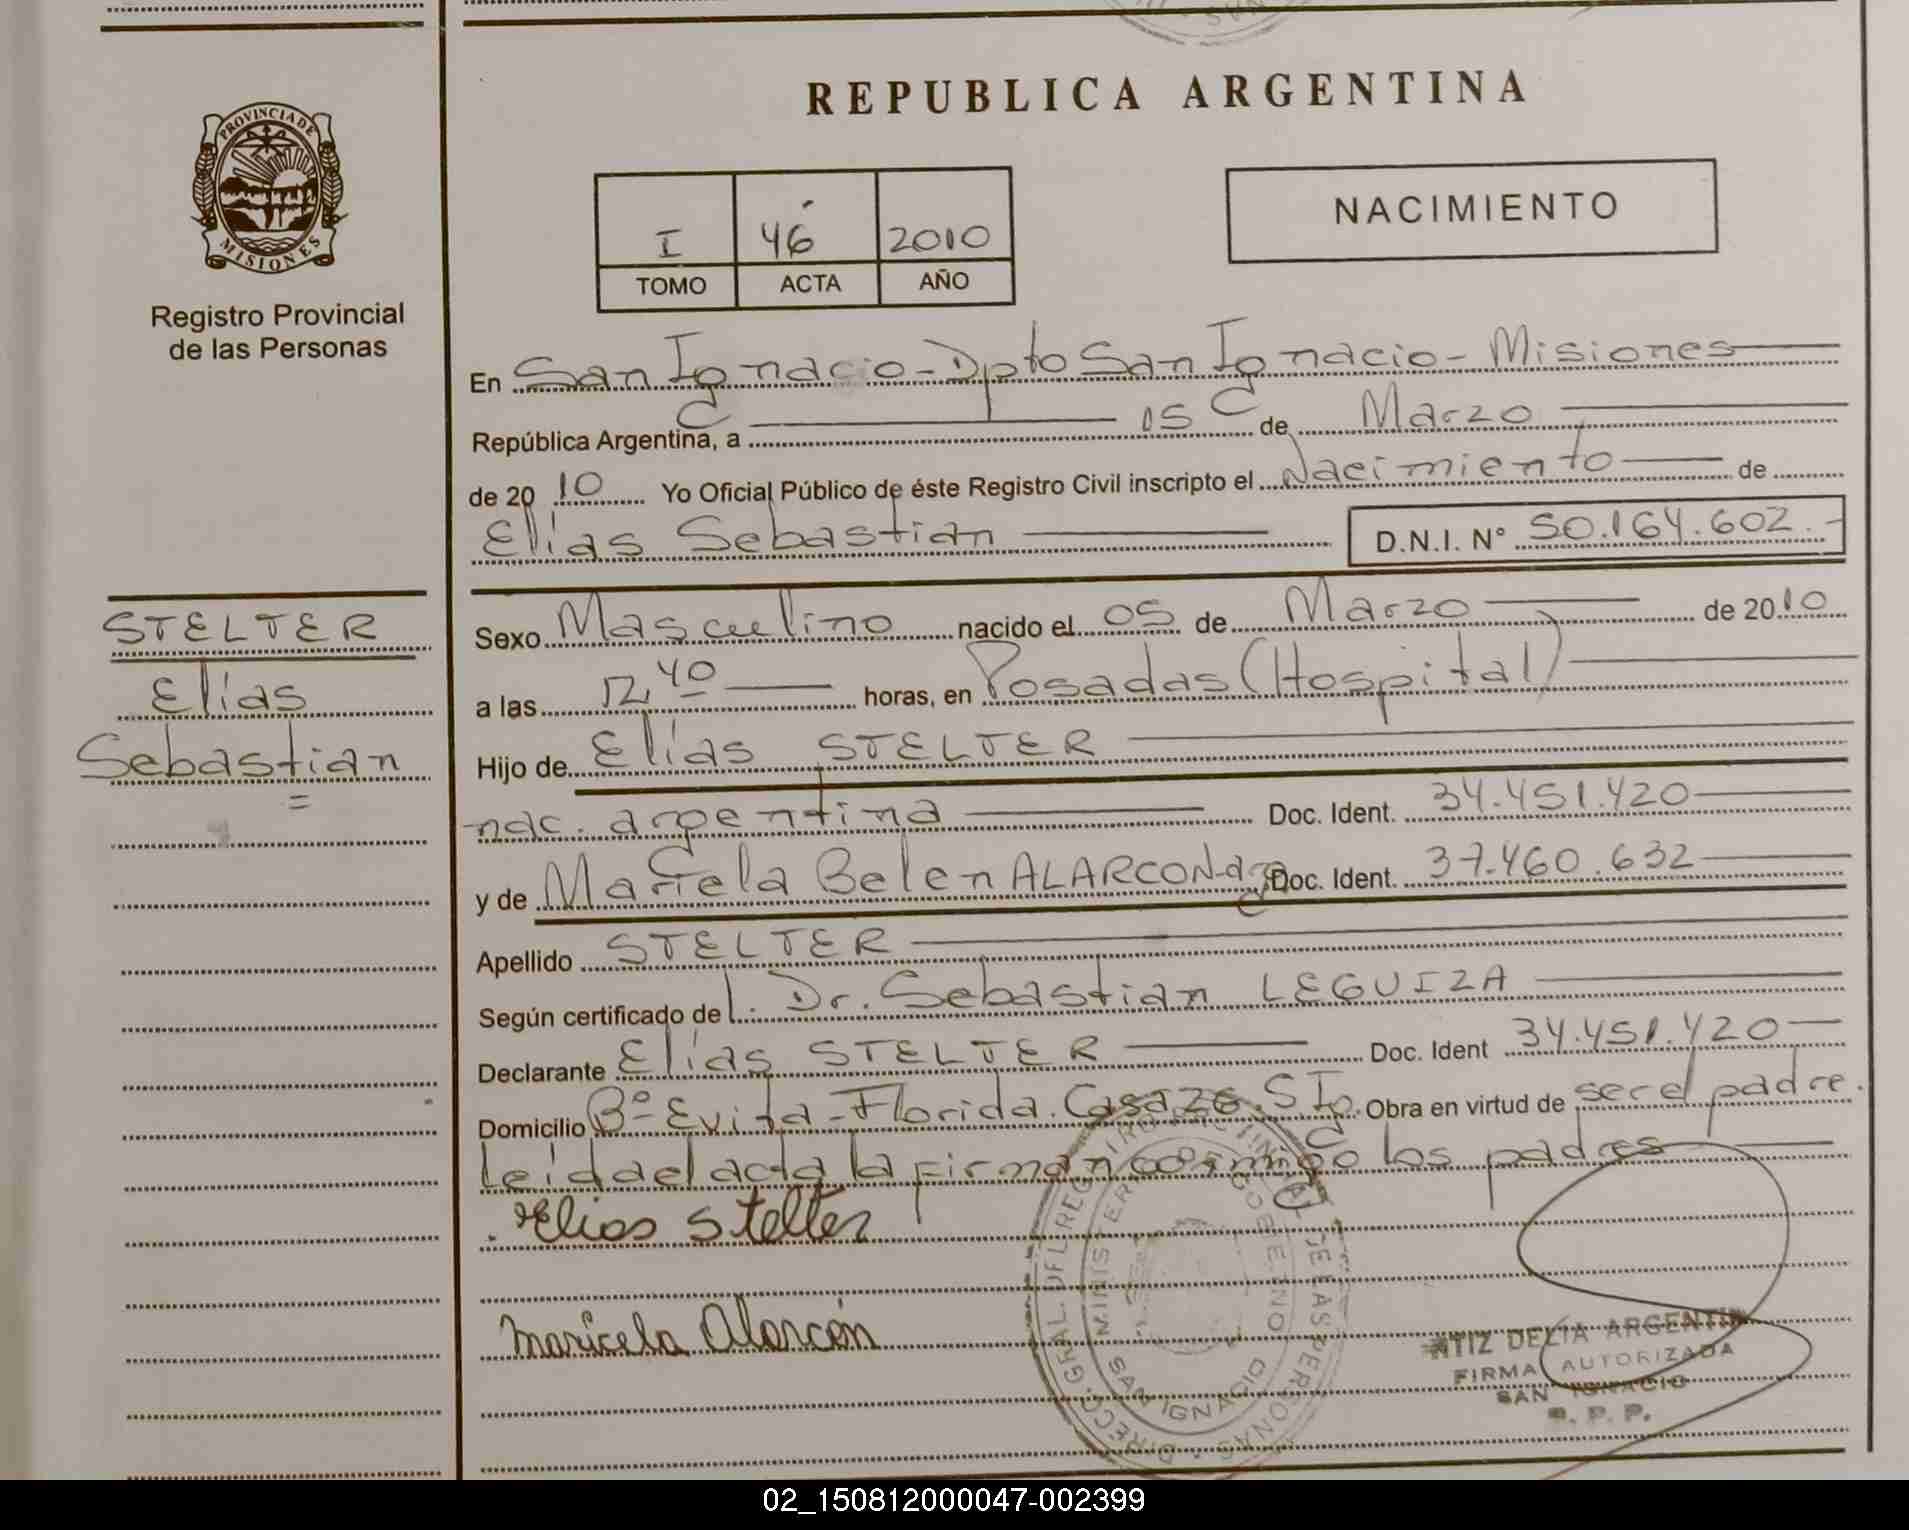 REPUBLICA ARGENTINA
PROVINCIA DE
MISIONES
Registro Provincial
de las Personas
I 46 2010
TOMO ACTA AÑO
NACIMIENTO
En San Ignacio - Dpto San Ignacio - Misiones
República Argentina, a 05 de Marzo
de 2010 Yo Oficial Público de éste Registro Civil inscripto el Nacimiento de
Elías Sebastian D.N.I. N° 50.164.602.-
STELTER
Elías
Sebastian
=
Sexo Masculino nacido el 05 de Marzo de 2010
a las 12,40 horas, en Posadas (Hospital)
Hijo de Elías STELTER
nac. argentina Doc. Ident. 34.451.420
y de Mariela Belen ALARCON-arg Doc. Ident. 37.460.632
Apellido STELTER
Según certificado de l. Dr. Sebastian LEGUIZA
Declarante Elías STELTER Doc. Ident 34.451.420
Domicilio B° Evita-Florida. Casa 26. S Ig. Obra en virtud de ser el padre.
Leída el acta la firman conmigo los padres
Elias Stelter
Maricela Alarcón
DIRECC. GRAL. DEL REG. DE LAS PERSONAS
MINISTERIO DE GOBIERNO
SAN IGNACIO
DELIA ARGENTIN
FIRMA AUTORIZADA
SAN IGNACIO
R. P. P.
02_150812000047-002399